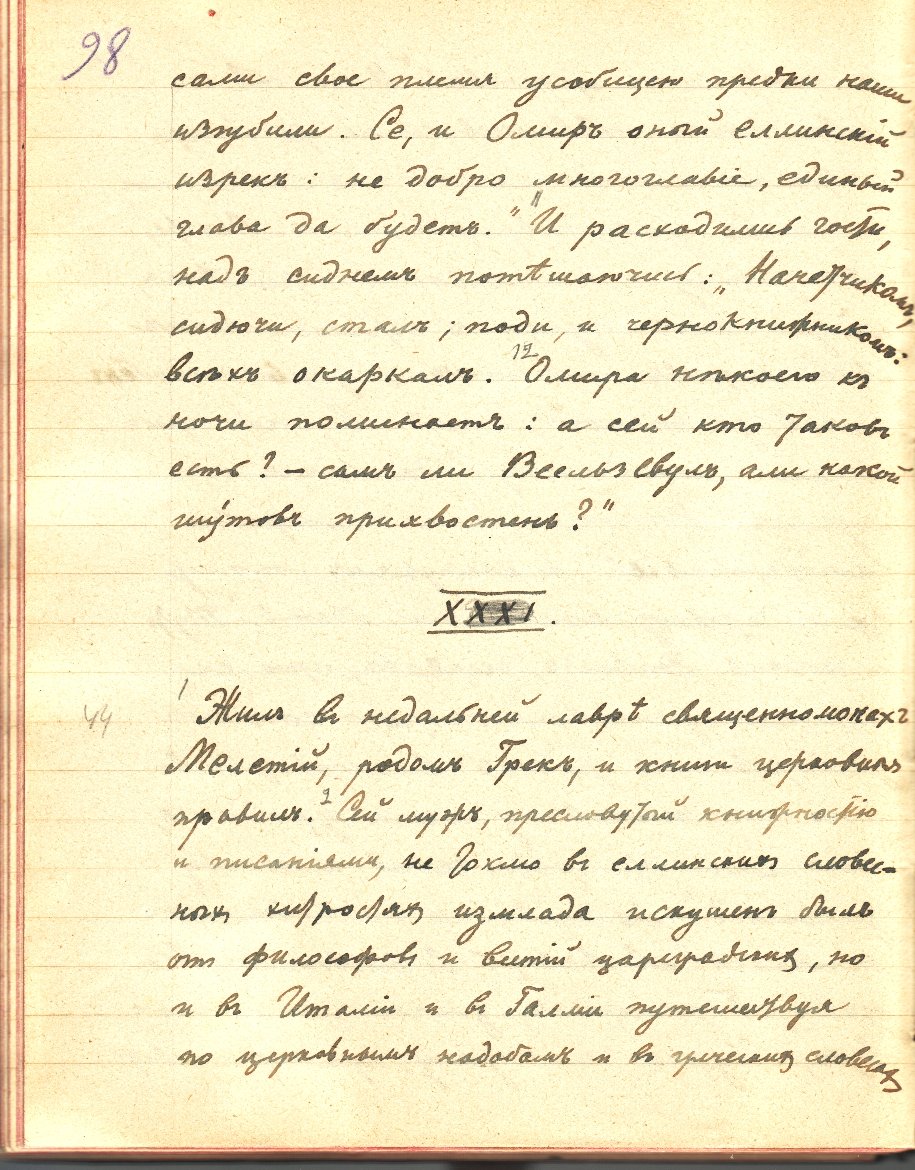 98
сами свое племя усобицею предки наши
изгубили. Се, и Омиръ оный еллинскій
изрекъ: не добро многоглавіе, единый
глава да будетъ." "И расходились гости,
надъ сиднемъ потѣшаючись: „Начетчикомъ,
сидючи, сталъ; поди, и чернокнижникомъ:
всѣхъ окаркалъ. 12 Омира нѣкоего къ
ночи поминаетъ: а сей кто таковъ
есть? – самъ ли Веельзевулъ, али какой
шу́товъ прихвостень?"
XXXI.
44
1 Жилъ въ недальней лаврѣ священномонахъ
Мелетій, родомъ Грекъ, и книги церковныя
правилъ. 2 Сей мужъ, пресловутый книжностію
и писаніями, не токмо въ еллинскихъ словес-
ныхъ хитростяхъ измлада искушенъ былъ
отъ философовъ и витій цареградскихъ, но
и въ Италіи и въ Галліи путешествуя
по церковнымъ надобамъ и въ греческихъ словесахъ